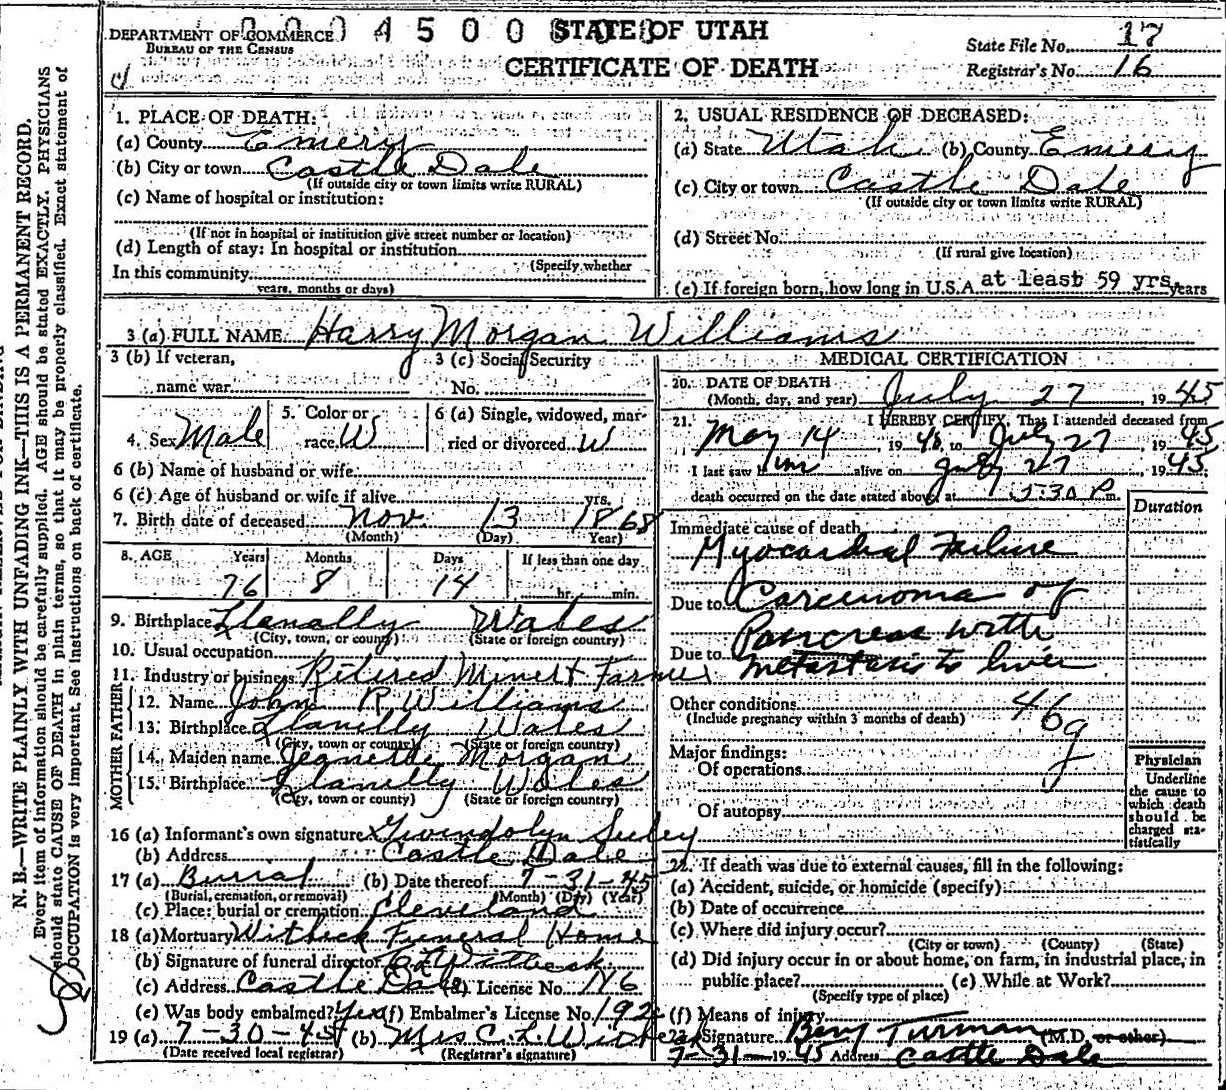 N. B.—WRITE PLAINLY WITH UNFADING INK—THIS IS A PERMANENT RECORD.
Every item of information should be carefully supplied. AGE should be stated EXACTLY. PHYSICIANS
should state CAUSE OF DEATH in plain terms, so that it may be properly classified. Exact statement of
OCCUPATION is very important. See instructions on back of certificate.
DEPARTMENT OF COMMERCE
BUREAU OF THE CENSUS
STATE OF UTAH
CERTIFICATE OF DEATH
State File No. 17
Registrar's No. 16
1. PLACE OF DEATH:
(a) County Emery
(b) City or town Castle Dale
(If outside city or town limits write RURAL)
(c) Name of hospital or institution:
(If not in hospital or institution give street number or location)
(d) Length of stay: In hospital or institution
(Specify whether
In this community
years, months or days)
2. USUAL RESIDENCE OF DECEASED:
(a) State Utah (b) County Emery
(c) City or town Castle Dale
(If outside city or town limits write RURAL)
(d) Street No.
(If rural give location)
(e) If foreign born, how long in U.S.A. at least 59 yrs. years
3 (a) FULL NAME Harry Morgan Williams
3 (b) If veteran, 3 (c) Social Security
name war No.
4. Sex Male 5. Color or race W 6 (a) Single, widowed, married or divorced W
6 (b) Name of husband or wife
6 (c) Age of husband or wife if alive yrs.
7. Birth date of deceased Nov. 13 1868
(Month) (Day) Year)
8. AGE Years Months Days If less than one day
76 8 14 hr. min.
9. Birthplace Llanally Wales
(City, town, or county) (State or foreign country)
10. Usual occupation
11. Industry or business Retired Miner & Farmer
FATHER
12. Name John R. Williams
13. Birthplace Llanelly Wales
(City, town or county) (State or foreign country)
MOTHER
14. Maiden name Jeanette Morgan
15. Birthplace Llanelly Wales
(City, town or county) (State or foreign country)
16 (a) Informant's own signature Gwendolyn Seeley
(b) Address Castle Dale
17 (a) Burial (b) Date thereof 7-31-45
(Burial, cremation, or removal) (Month) (Day) (Year)
(c) Place: burial or cremation Cleveland
18 (a) Mortuary Witbeck Funeral Home
(b) Signature of funeral director
(c) Address Castle Dale (d) License No. 176
(e) Was body embalmed? Yes (f) Embalmer's License No. 192
19 (a) 7-30-45 (b) Mrs C. L. Witbeck
(Date received local registrar) (Registrar's signature)
MEDICAL CERTIFICATION
20. DATE OF DEATH
(Month, day, and year) July 27, 1945
21. I HEREBY CERTIFY, That I attended deceased from
May 14, 19 to July 27, 1945
I last saw him alive on July 27, 1945
death occurred on the date stated above at 5:30 P m.
Duration
Immediate cause of death
Myocardial Failure
Due to Carcenoma of
Due to Pancreas with
metastasis to liver
Other conditions 46g
(Include pregnancy within 3 months of death)
Major findings:
Of operations
Of autopsy
Physician
Underline
the cause to
which death
should be
charged sta-
tistically
22. If death was due to external causes, fill in the following:
(a) Accident, suicide, or homicide (specify)
(b) Date of occurrence
(c) Where did injury occur?
(City or town) (County) (State)
(d) Did injury occur in or about home, on farm, in industrial place, in
public place? (e) While at Work?
(Specify type of place)
(f) Means of injury
23. Signature Turman (M.D. or other)
7-31-1945 Address Castle Dale